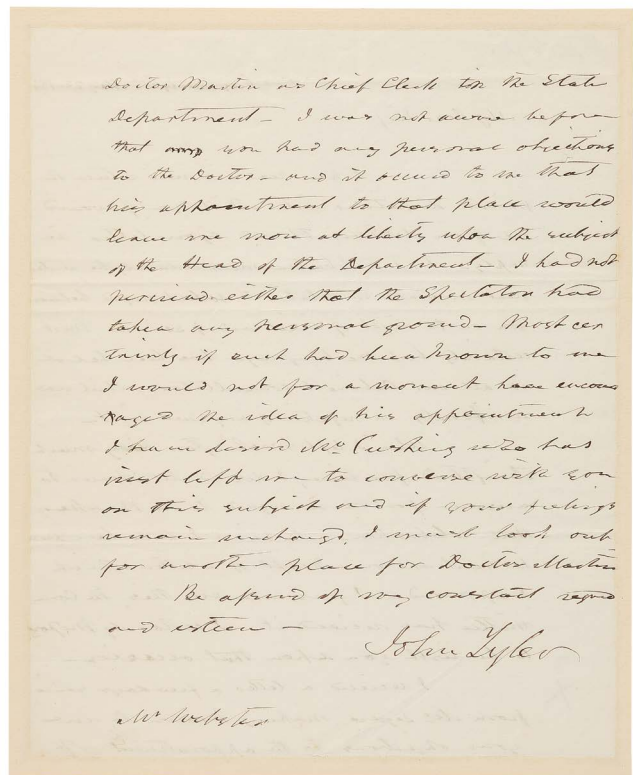 Doctor Martin as Chief Clerk in the State
Department - I was not aware before
that you had any personal objections
to the Doctor - and it occurred to me that
his appointment to that place would
leave me more at liberty upon the subject
of the Head of the Department - I had not
perceived either that the Spectator had
taken any personal ground - Most cer
tainly if such had been known to me
I would not for a moment have encou
raged the idea of his appointment
I have desired Mr Cushing who has
just left me to converse with you
on this subject and if your feelings
remain unchang'd, I must look out
for another place for Doctor Martin
Be assured of my constant regard
and esteem -
John Tyler
Mr Webster